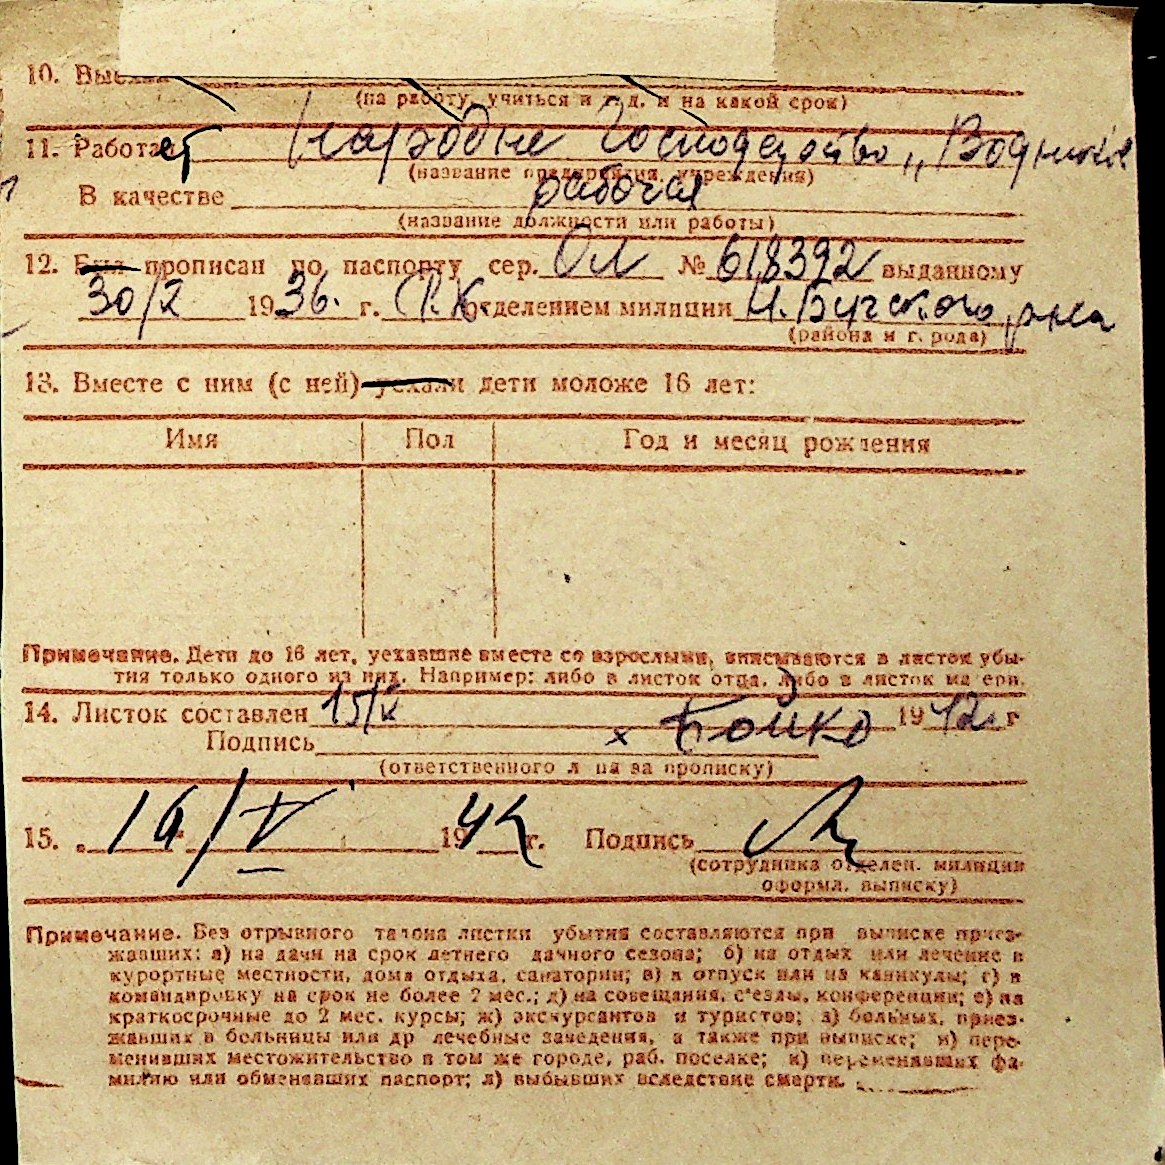 10. Выехал
(на работу, учиться и т. д. и на какой срок)
11. Работает Народне Господарство „Водник"
(название предприятия, учреждения)
В качестве рабочая
(название должности или работы)
12. Был прописан по паспорту сер. ОЛ № 618392 выданному
30/2 1936. г. Р.К. отделением милиции Н.Бугского р-на
(района и города)
13. Вместе с ним (с ней) уехали дети моложе 16 лет:
Имя Пол Год и месяц рождения
Примечание. Дети до 16 лет, уехавшие вместе со взрослыми, вписываются в листок убы-
тия только одного из них. Например: либо в листок отца, либо в листок матери.
14. Листок составлен 15/V 1942 г
Подпись х Бойко
(ответственного лица за прописку)
15. „16/V 1942 г. Подпись
(сотрудника отделен. милиции
оформл. выписку)
Примечание. Без отрывного талона листки убытия составляются при выписке приез-
жавших: а) на дачи на срок летнего дачного сезона; б) на отдых или лечение в
курортные местности, дома отдыха, санатории; в) в отпуск или на каникулы; г) в
командировку на срок не более 2 мес.; д) на совещания, с'езды, конференции; е) на
краткосрочные до 2 мес. курсы; ж) экскурсантов и туристов; з) больных, приез-
жавших в больницы или др лечебные заведения, а также при выписке; и) пере-
менивших местожительство в том же городе, раб. поселке; к) переменявших фа-
милию или обменявших паспорт; л) выбывших вследствие смерти.